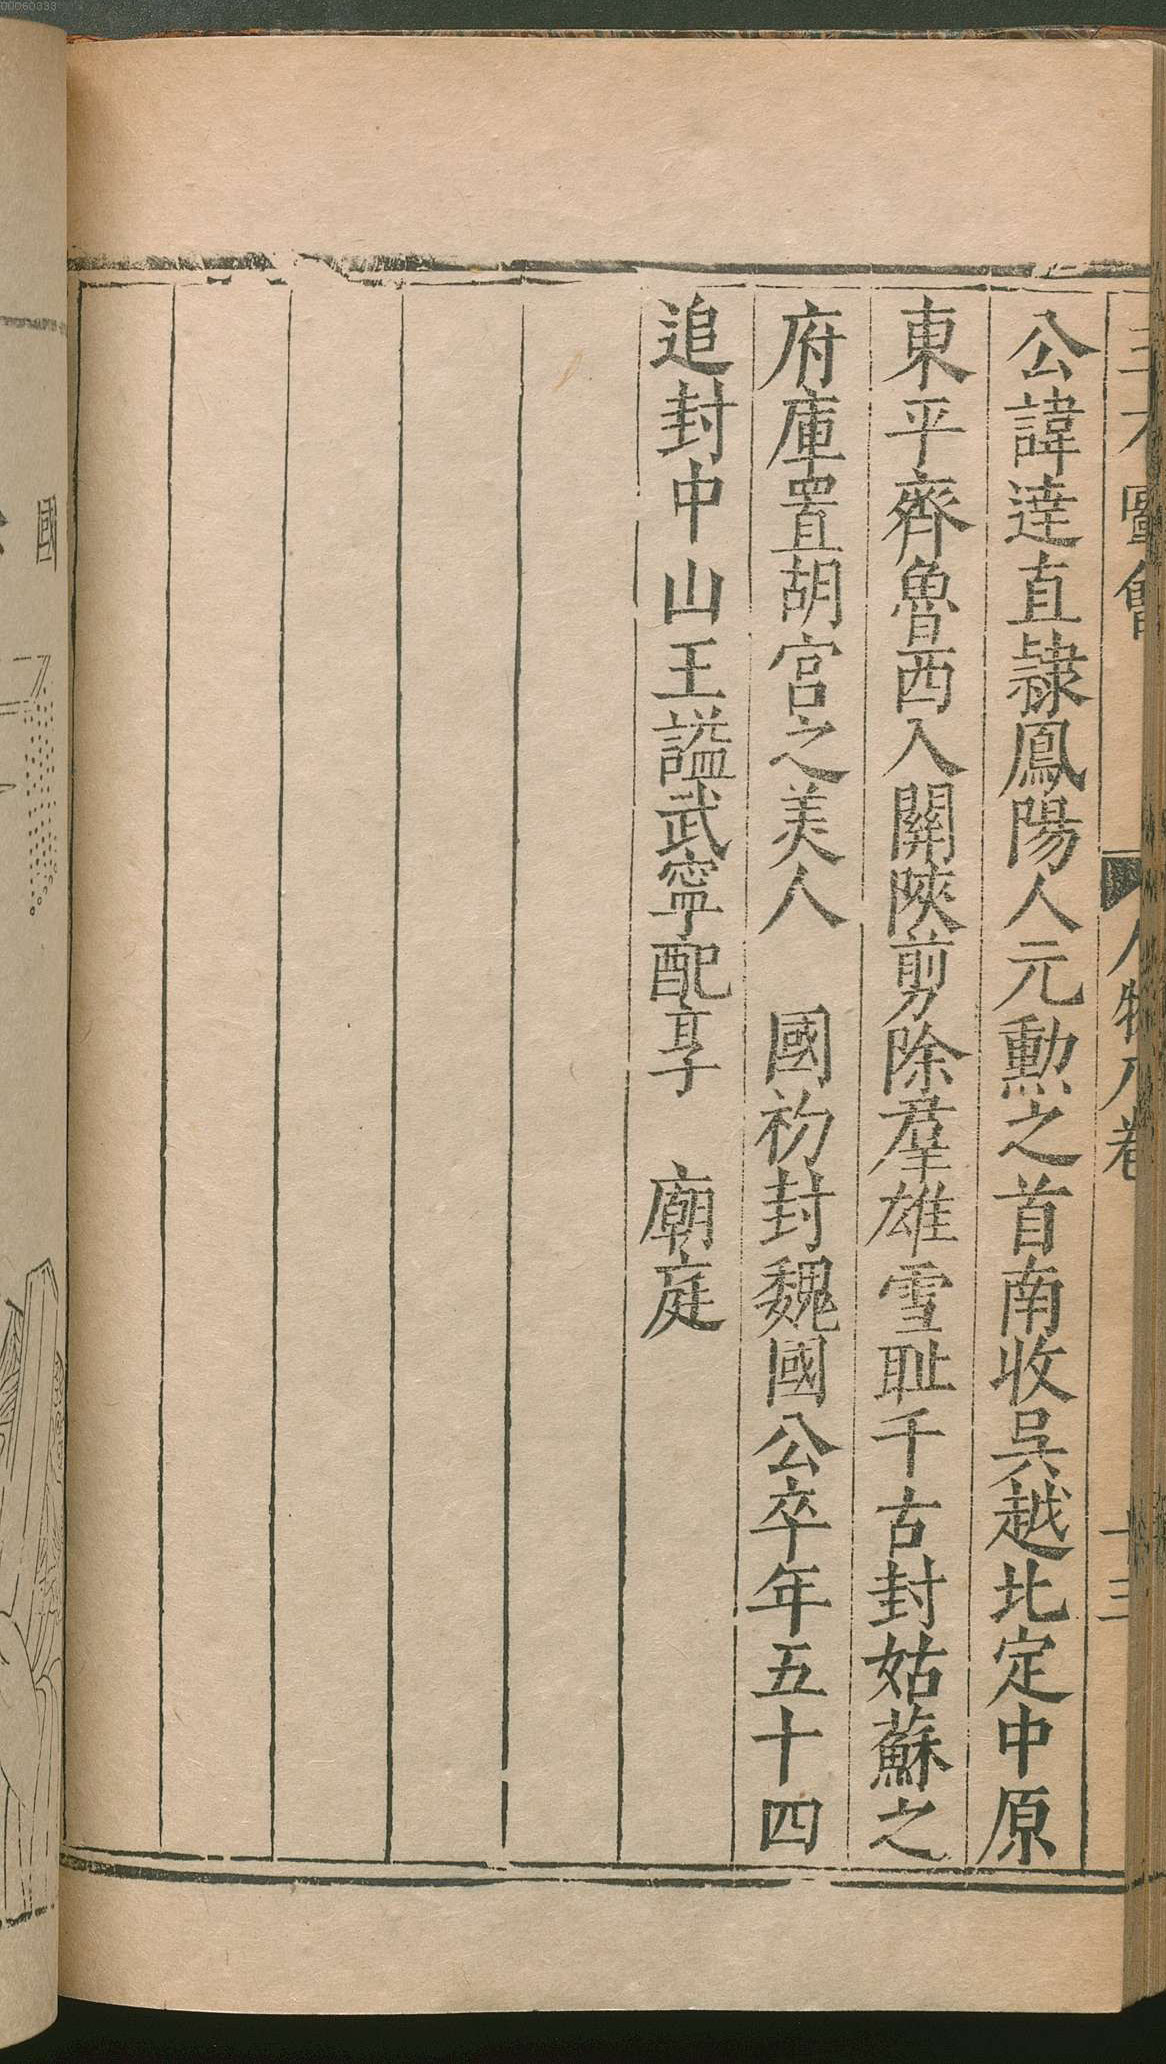 三才圖會 人物八卷 十三
公諱達直隷鳳陽人元勲之首南收吳越北定中原
東平齊魯西入關陝剪除羣雄雪耻千古封姑蘇之
府庫置胡宮之美人 國初封魏國公卒年五十四
追封中山王謚武寧配享 廟庭
國
00060333